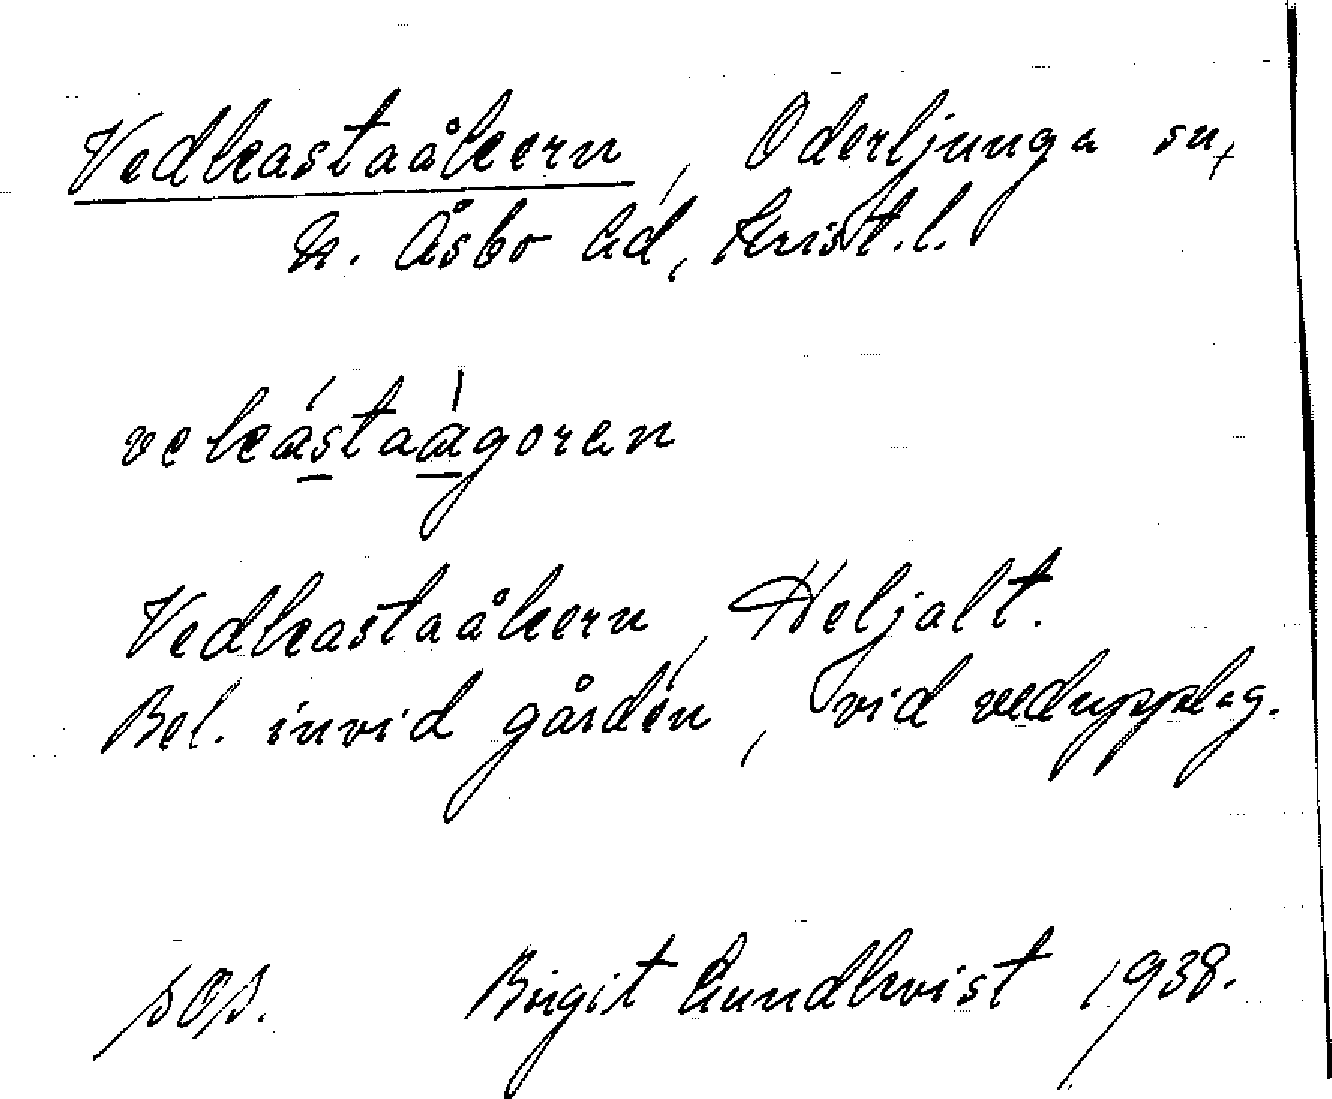 Vedkastaåkern, Oderljunga sn,
N. Åsbo hd, Krist. l.
vekástaágoren
Vedkastaåkern, Heljalt.
Bel. invid gården, vid vedupplag.
sOs. Birgit Lundkvist 1938.